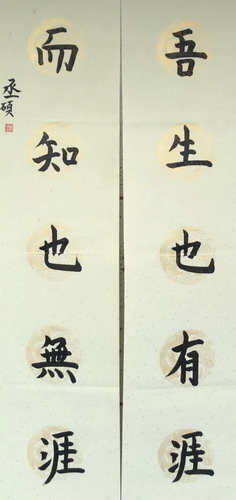 吾生也有涯
而知也無涯
丞碩